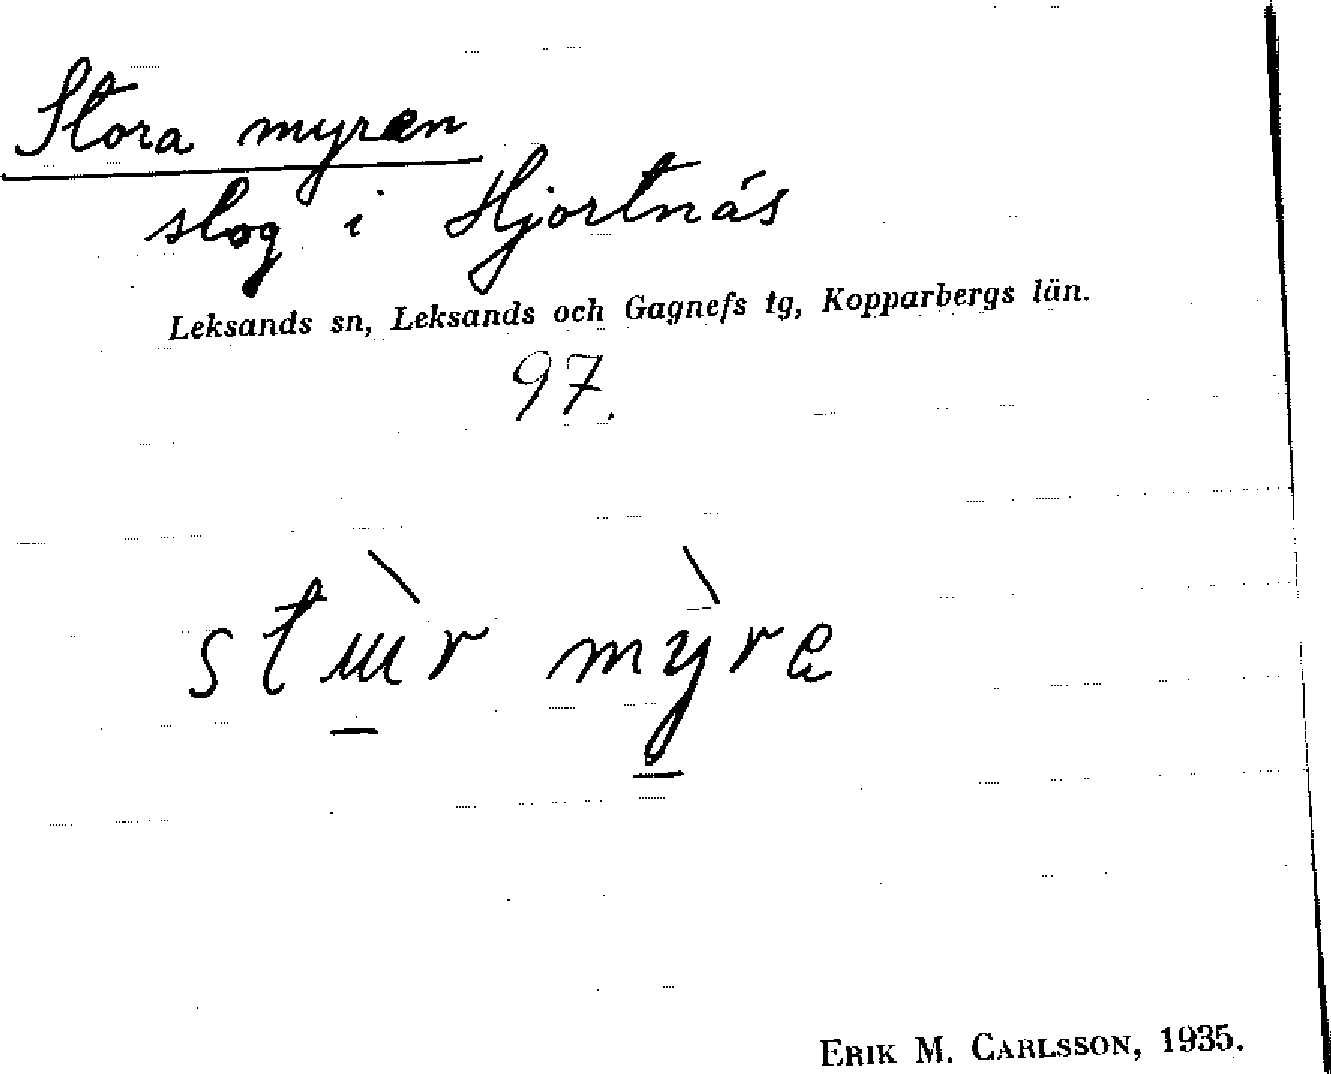 Stora myren
slog i Hjortnäs
Leksands sn, Leksands och Gagnefs tg, Kopparbergs län.
97.
stɯ̀r mỳ̠re
ERIK M. CARLSSON, 1935.